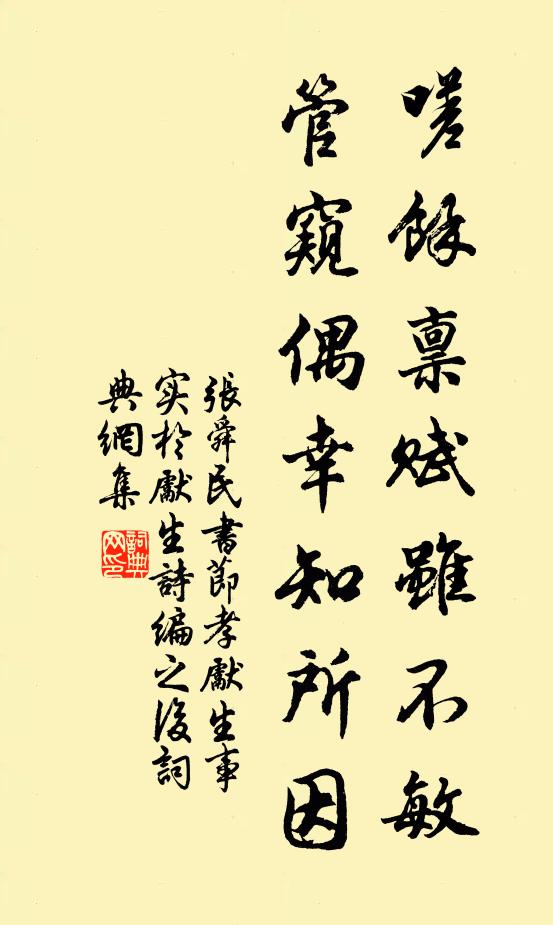 嗟餘禀赋雖不敏
管窺偶幸知所因
張舜民書節孝處生事
实於處生詩編之後詞
典網集
詞典
网印